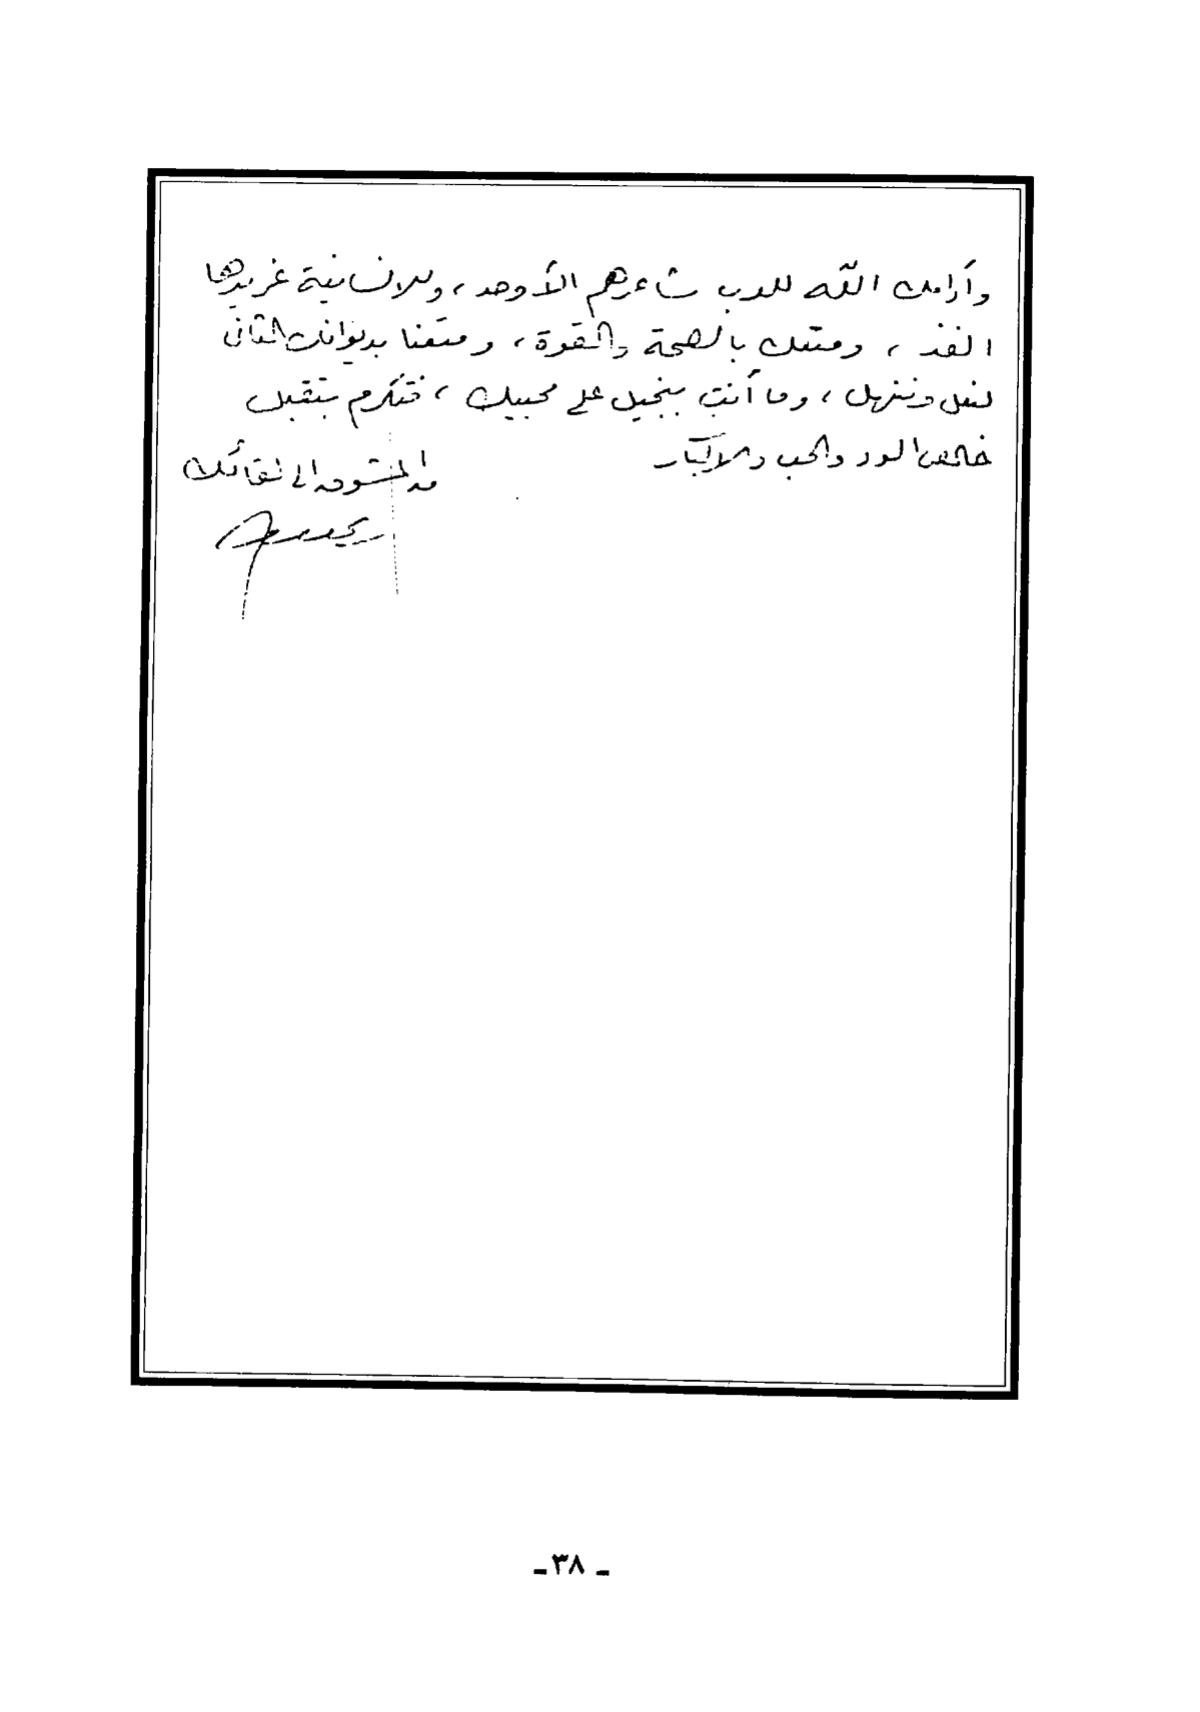 وأدامك الله للعرب شاعرهم الأوحد، وللانسانية غريدها
الفذ، ومتعك بالصحة والقوة، ومتعنا بديوانك الثاني
لنعل وننهل، وما أنت ببخيل على محبيك، فتكرم بتقبل
خالص الود والحب والإكبار
من المشوق إلى لقائك
ـ ٣٨ ـ